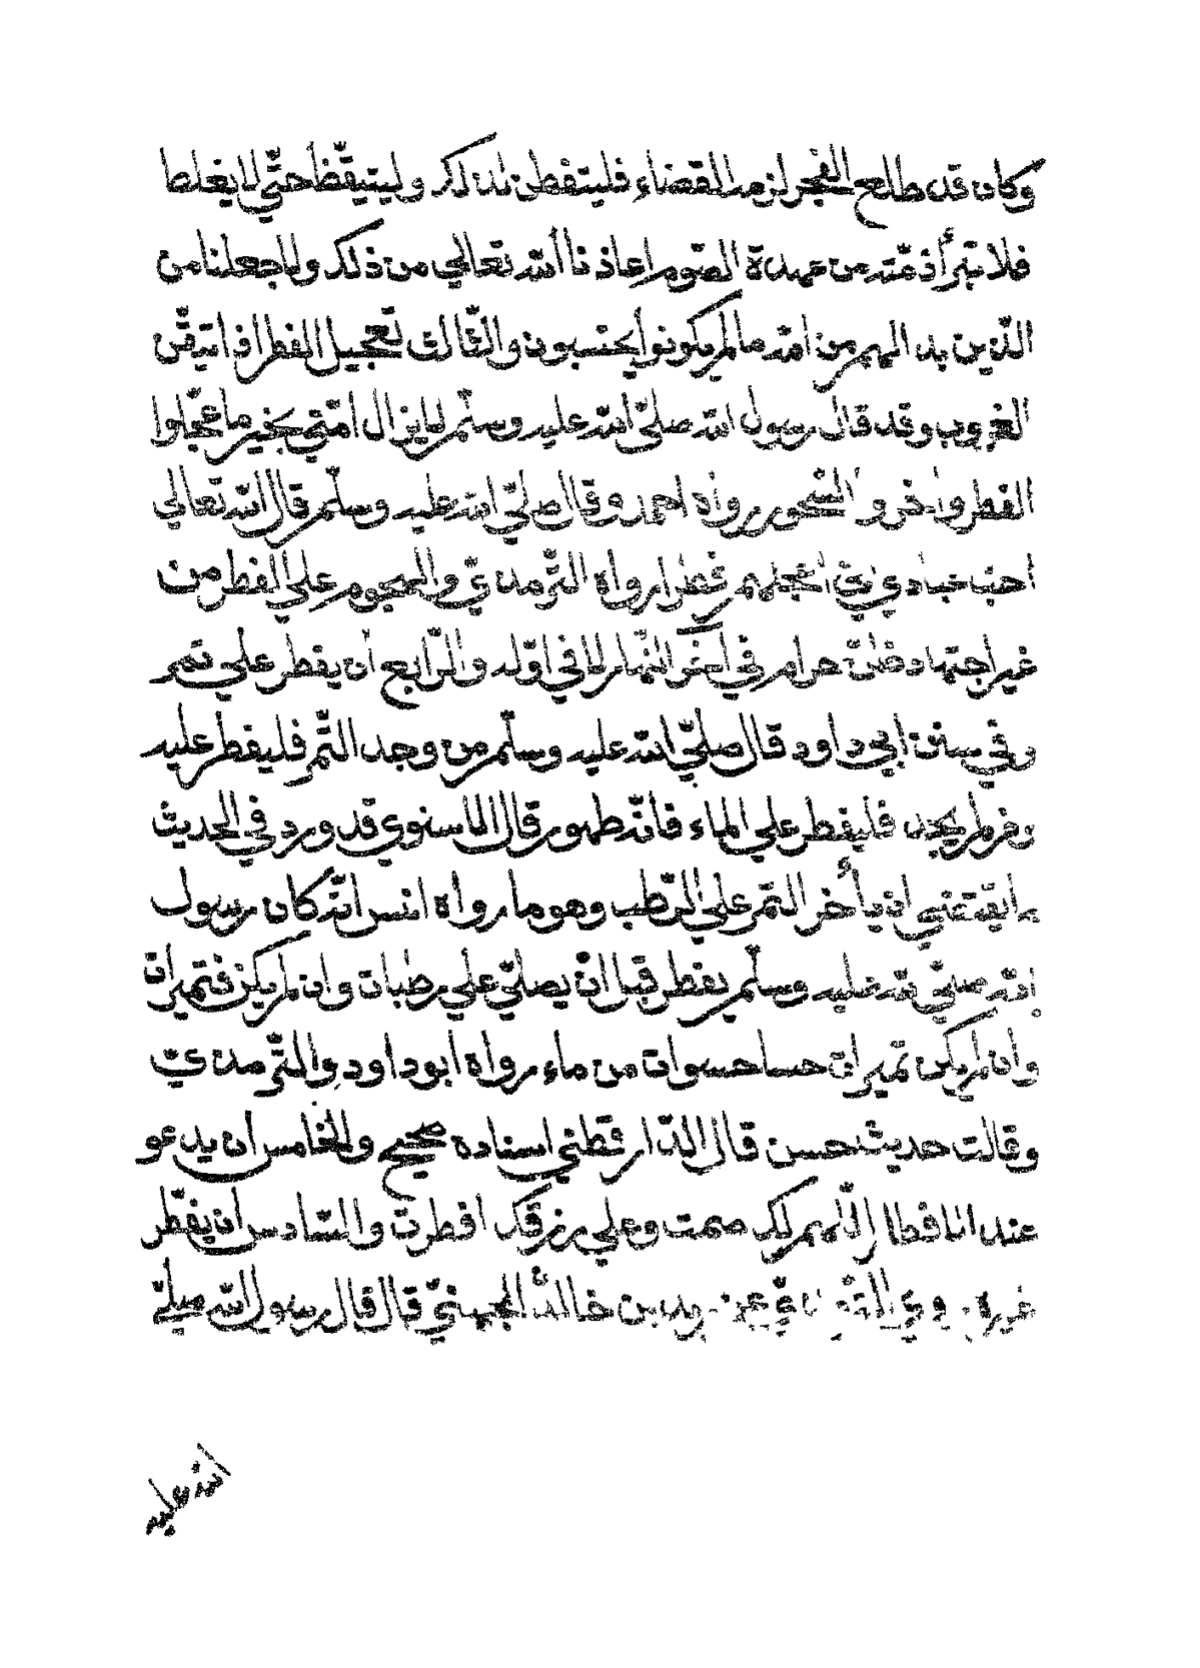 وكان قد طلع الفجر لزمه القضاء فليتفطن لذلك وليتيقّظ حتّي لا يغلط
فلا تبرأ ذمّته من عهدة الصّوم اعاذنا الله تعالي من ذلك ولا جعلنا من
الّذين بدا لهم من الله ما لم يكونوا يحتسبون والثّالث تعجيل الفطر اذا تيقّن
الغروب وقد قال رسول الله صلّي الله عليه وسلّم لا يزال امّتي بخير ما عجّلوا
الفطر واخروا السّحور رواه احمد وقال صلّي الله عليه وسلّم قال الله تعالي
احبّ عبادي اليّ اعجلهم فطرا رواه التّرمذيّ والهجوم علي الفطر من
غير اجتهاد وظنّ حرام في اخر النّهار لا في اوّله والرّابع أن يفطر علي تمر
وفي سنن ابي داود قال صلّي الله عليه وسلّم من وجد التّمر فليفطر عليه
ومن لم يجد فليفطر علي الماء فانّه طهور قال الاسنوي قد ورد في الحديث
ما يقتضي ان يأخر التّمر علي الرّطب وهو ما رواه انس انّه كان رسول
الله صلّي الله عليه وسلّم يفطر قبل ان يصلّي علي رطبات وان لم يكن فتميرات
وان لم يكن تميرات حسا حسوات من ماء رواه ابو داود والتّرمذيّ
وقالت حديث حسن قال الدّارقطني اسناده صحيح والخامس ان يدعو
عند الافطار اللّهم لك صمت وعلي رزقك افطرت والسّادس ان يفطّر
غيره روي التّرمذيّ عن زيد بن خالد الجهنيّ قال قال رسول الله صلّي
الله عليه